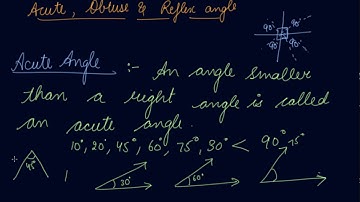 Acute, Obtuse & Reflex angle
90° 90°
90° 90°
Acute Angle :- An angle smaller
than a right angle is called
an acute angle.
10°, 20°, 45°, 60°, 75°, 30° < 90°
45° 30° 60° 75°